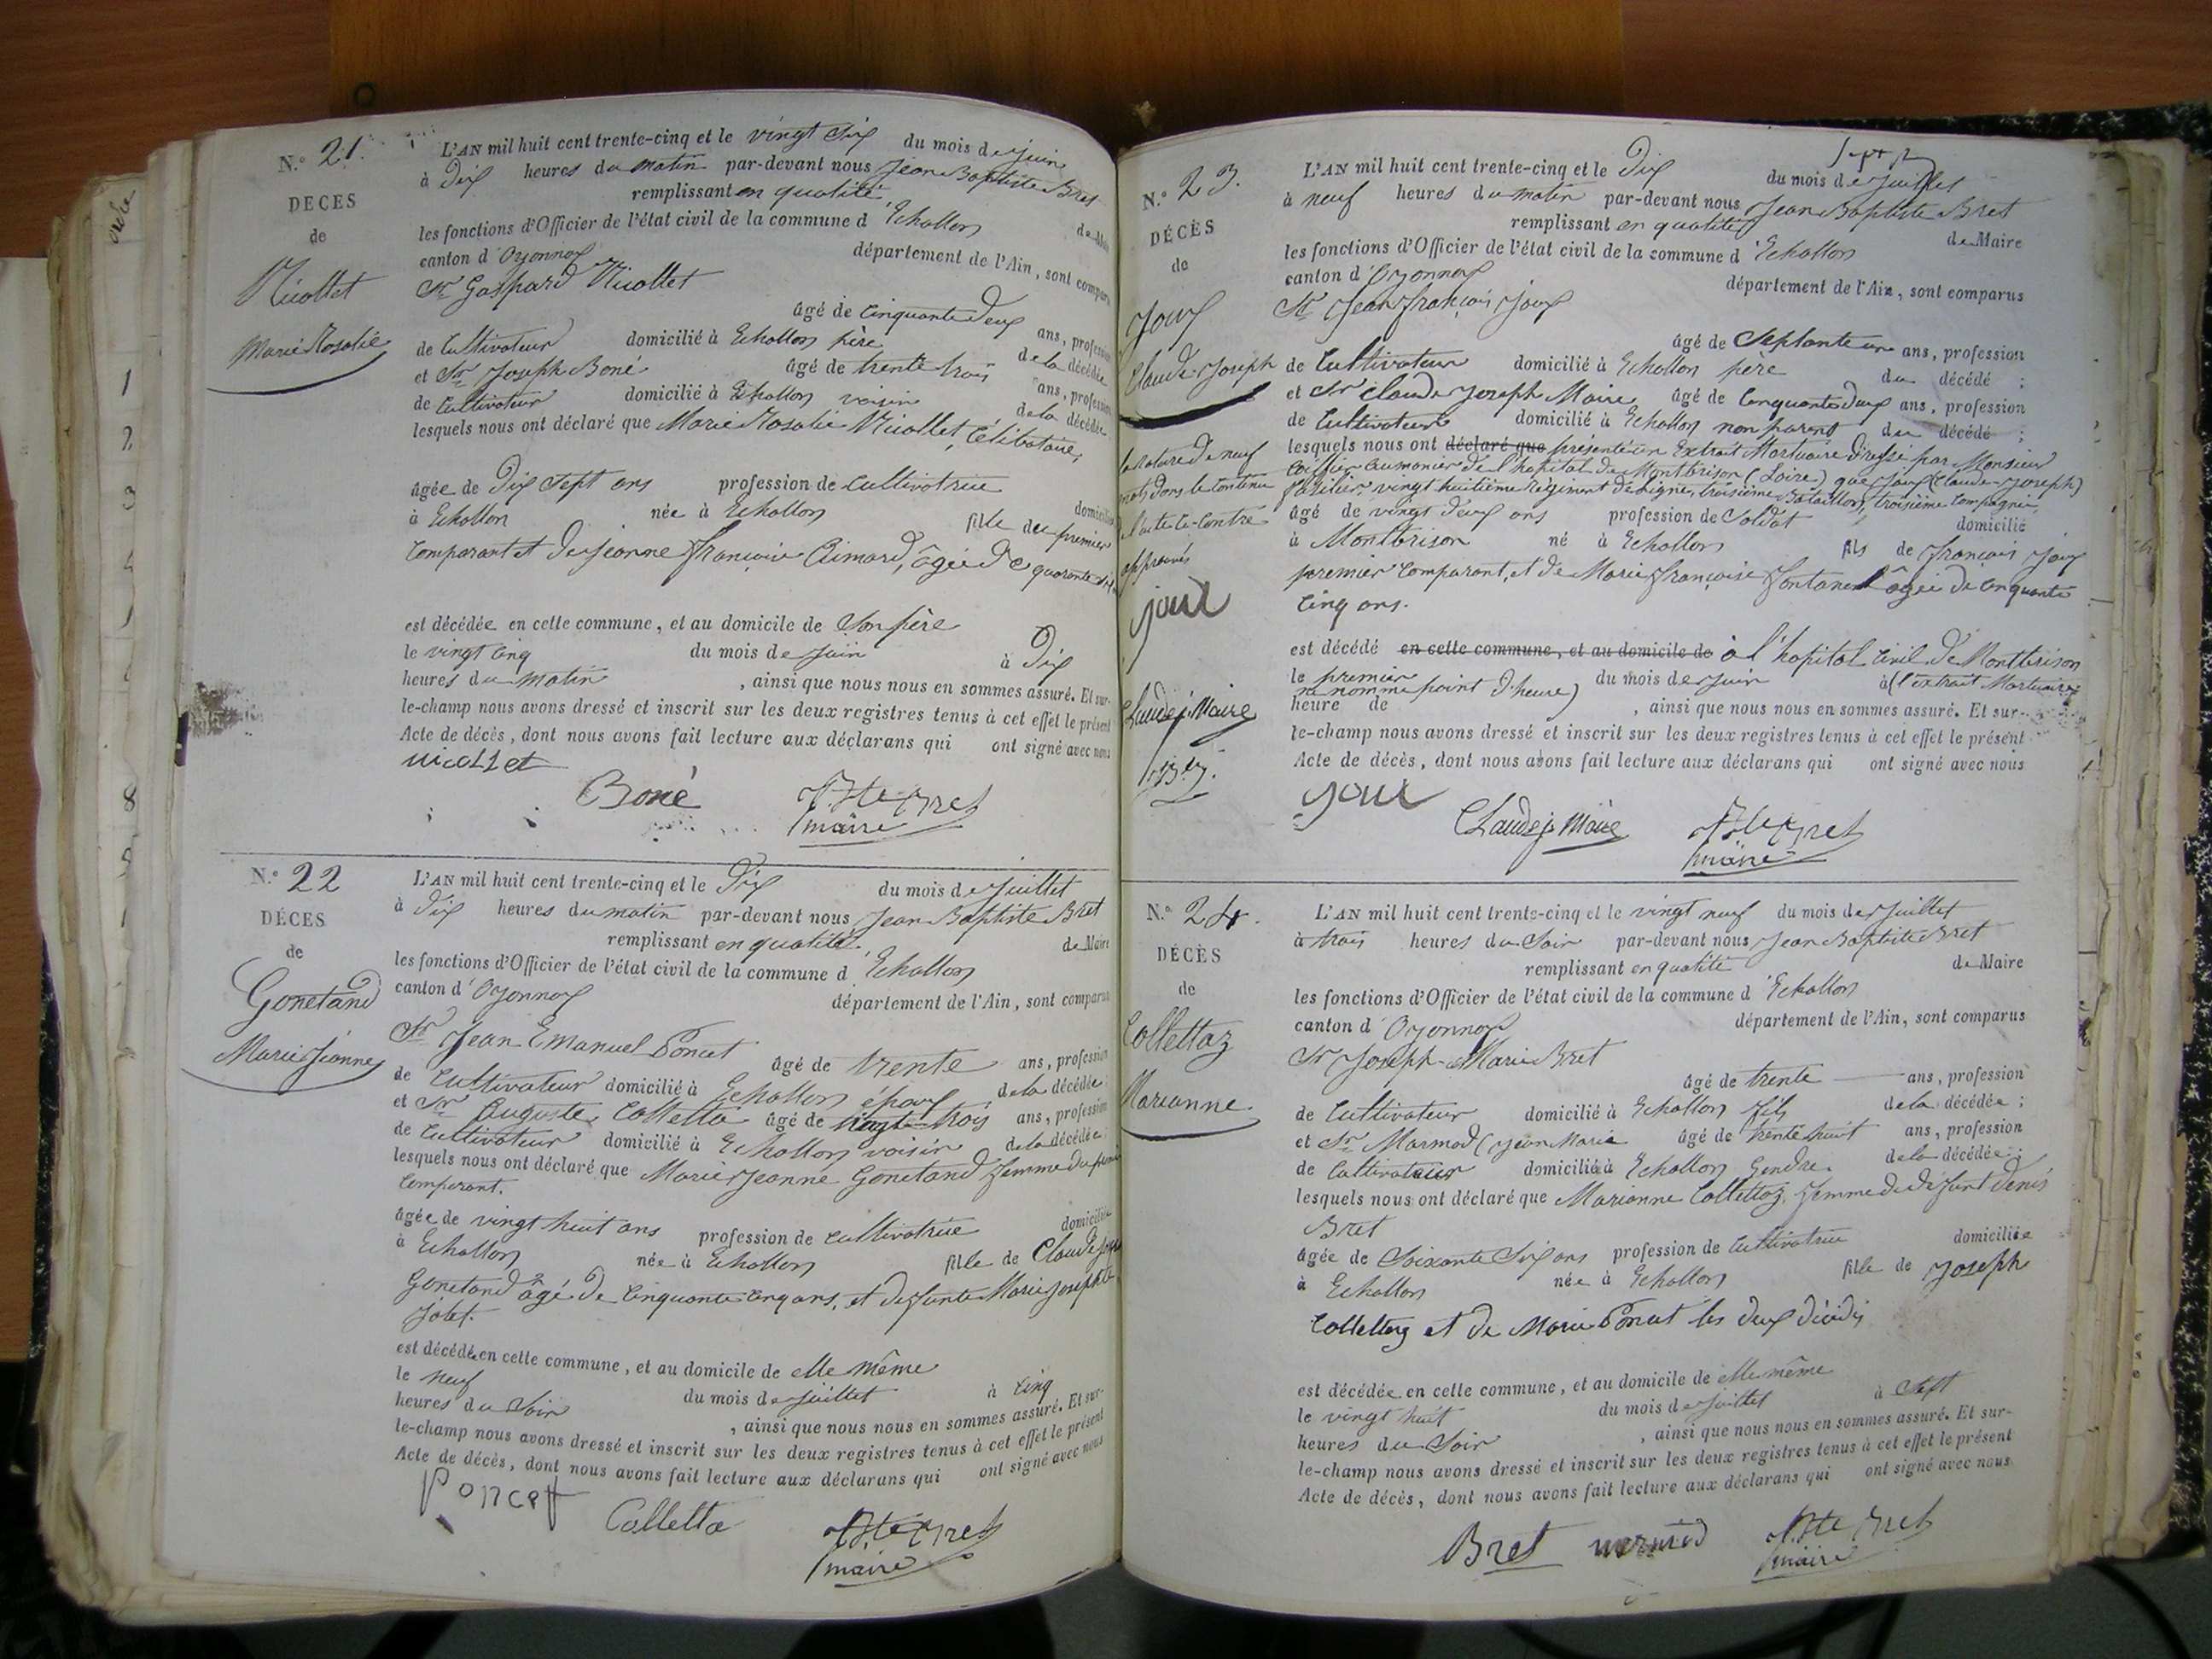 N.° 21.
DECES
de
Nicollet
Marie Rosalie
L'AN mil huit cent trente-cinq et le vingt six du mois de juin
à dix heures du matin par-devant nous Jean Baptiste Bret
remplissant en qualité de Maire
les fonctions d'Officier de l'état civil de la commune d'Echallon
canton d'Oyonnax département de l'Ain, sont comparus
Sr Gaspard Nicollet
âgé de cinquante deux ans, profession
de Cultivateur domicilié à Echallon père de la décédée
et Sr Joseph Boné âgé de trente trois ans, profession
de Cultivateur domicilié à Echallon voisin de la décédée
lesquels nous ont déclaré que Marie Rosalie Nicollet, Célibataire,
âgée de dix sept ans profession de cultivatrice domiciliée
à Echallon née à Echallon fille du premier
comparant et de Jeanne Françoise Aimard, âgée de quarante
est décédée en cette commune, et au domicile de Son père
le vingt cinq du mois de Juin à Dix
heures du matin , ainsi que nous nous en sommes assuré. Et sur-
le-champ nous avons dressé et inscrit sur les deux registres tenus à cet effet le présent
Acte de décès, dont nous avons fait lecture aux déclarans qui ont signé avec nous
nicollet
Boné
J. Bte Bret
maire
N.° 22
DÉCES
de
Gonetand
Marie Jeanne
L'AN mil huit cent trente-cinq et le Dix du mois de Juillet
à dix heures du matin par-devant nous Jean Baptiste Bret
remplissant en qualité de Maire
les fonctions d'Officier de l'état civil de la commune d'Echallon
canton d'Oyonnax département de l'Ain, sont comparus
Sr Jean Emanuel Poncet âgé de trente ans, profession
de Cultivateur domicilié à Echallon époux de la décédée
et Sr Auguste Colletta âgé de vingt-trois ans, profession
de Cultivateur domicilié à Echallon voisin de la décédée
lesquels nous ont déclaré que Marie Jeanne Gonetand femme du premier
Comparant.
âgée de vingt huit ans profession de cultivatrice domiciliée
à Echallon née à Echallon fille de Claude Joseph
Gonetand âgé de Cinquante cinq ans, et de defunte Marie Josephte
Jobet.
est décédée en cette commune, et au domicile de elle même
le neuf du mois de Juillet à cinq
heures du Soir , ainsi que nous nous en sommes assuré. Et sur-
le-champ nous avons dressé et inscrit sur les deux registres tenus à cet effet le présent
Acte de décès, dont nous avons fait lecture aux déclarans qui ont signé avec nous
Poncet
Colletta
J. Bte Bret
maire
N.° 23.
DÉCÈS
de
Joux
Claude Joseph
la rature de neuf
mots dans le contenu
l'acte ci-contre
approuvés
joux
Claude j. Maire
L'AN mil huit cent trente-cinq et le Dix du mois de Juillet
à neuf heures du matin par-devant nous Jean Baptiste Bret
remplissant en qualité de Maire
les fonctions d'Officier de l'état civil de la commune d'Echallon
canton d'Oyonnax département de l'Ain, sont comparus
Sr Jean François Joux
âgé de Septante un ans, profession
de Cultivateur domicilié à Echallon père du décédé ;
et Sr Claude Joseph Maire âgé de Cinquante deux ans, profession
de Cultivateur domicilié à Echallon non parent du décédé ;
lesquels nous ont déclaré que présenté un Extrait Mortuaire dressé par Monsieur
aumonier de l'hopital de Montbrison (Loire) que Joux (Claude-Joseph)
fusilier, vingt huitième régiment de Ligne, troisième Bataillon, troisième Compagnie
âgé de vingt deux ans profession de Soldat domicilié
à Montbrison né à Echallon fils de François Joux
premier comparant, et de Marie Françoise Fontanel âgée de cinquante
cinq ans.
est décédé en cette commune, et au domicile de à l'hopital civil de Montbrison
le premier du mois de Juin à (l'extrait Mortuaire
ne nomme point d'heure)
heure de , ainsi que nous nous en sommes assuré. Et sur-
le-champ nous avons dressé et inscrit sur les deux registres tenus à cet effet le présent
Acte de décès, dont nous avons fait lecture aux déclarans qui ont signé avec nous
joux
Claude j. Maire
J. Bte Bret
maire
N.° 24.
DÉCÈS
de
Collettaz
Marianne
L'AN mil huit cent trente-cinq et le vingt neuf du mois de Juillet
à trois heures du Soir par-devant nous Jean Baptiste Bret
remplissant en qualité de Maire
les fonctions d'Officier de l'état civil de la commune d'Echallon
canton d'Oyonnax département de l'Ain, sont comparus
Sr Joseph-Marie Bret
âgé de trente ans, profession
de Cultivateur domicilié à Echallon fils de la décédée ;
et Sr Marmod (Jean Marie âgé de trente huit ans, profession
de Cultivateur domicilié à Echallon Gendre de la décédée ;
lesquels nous ont déclaré que Marianne Collettaz, femme de défunt Denis
Bret
âgée de Soixante Six ans profession de Cultivatrice domiciliée
à Echallon née à Echallon fille de Joseph
Collettaz et de Marie Poncet les deux décédés
est décédée en cette commune, et au domicile de elle même
le vingt huit du mois de Juillet à Sept
heures du Soir , ainsi que nous nous en sommes assuré. Et sur-
le-champ nous avons dressé et inscrit sur les deux registres tenus à cet effet le présent
Acte de décès, dont nous avons fait lecture aux déclarans qui ont signé avec nous
Bret
J. Bte Bret
maire